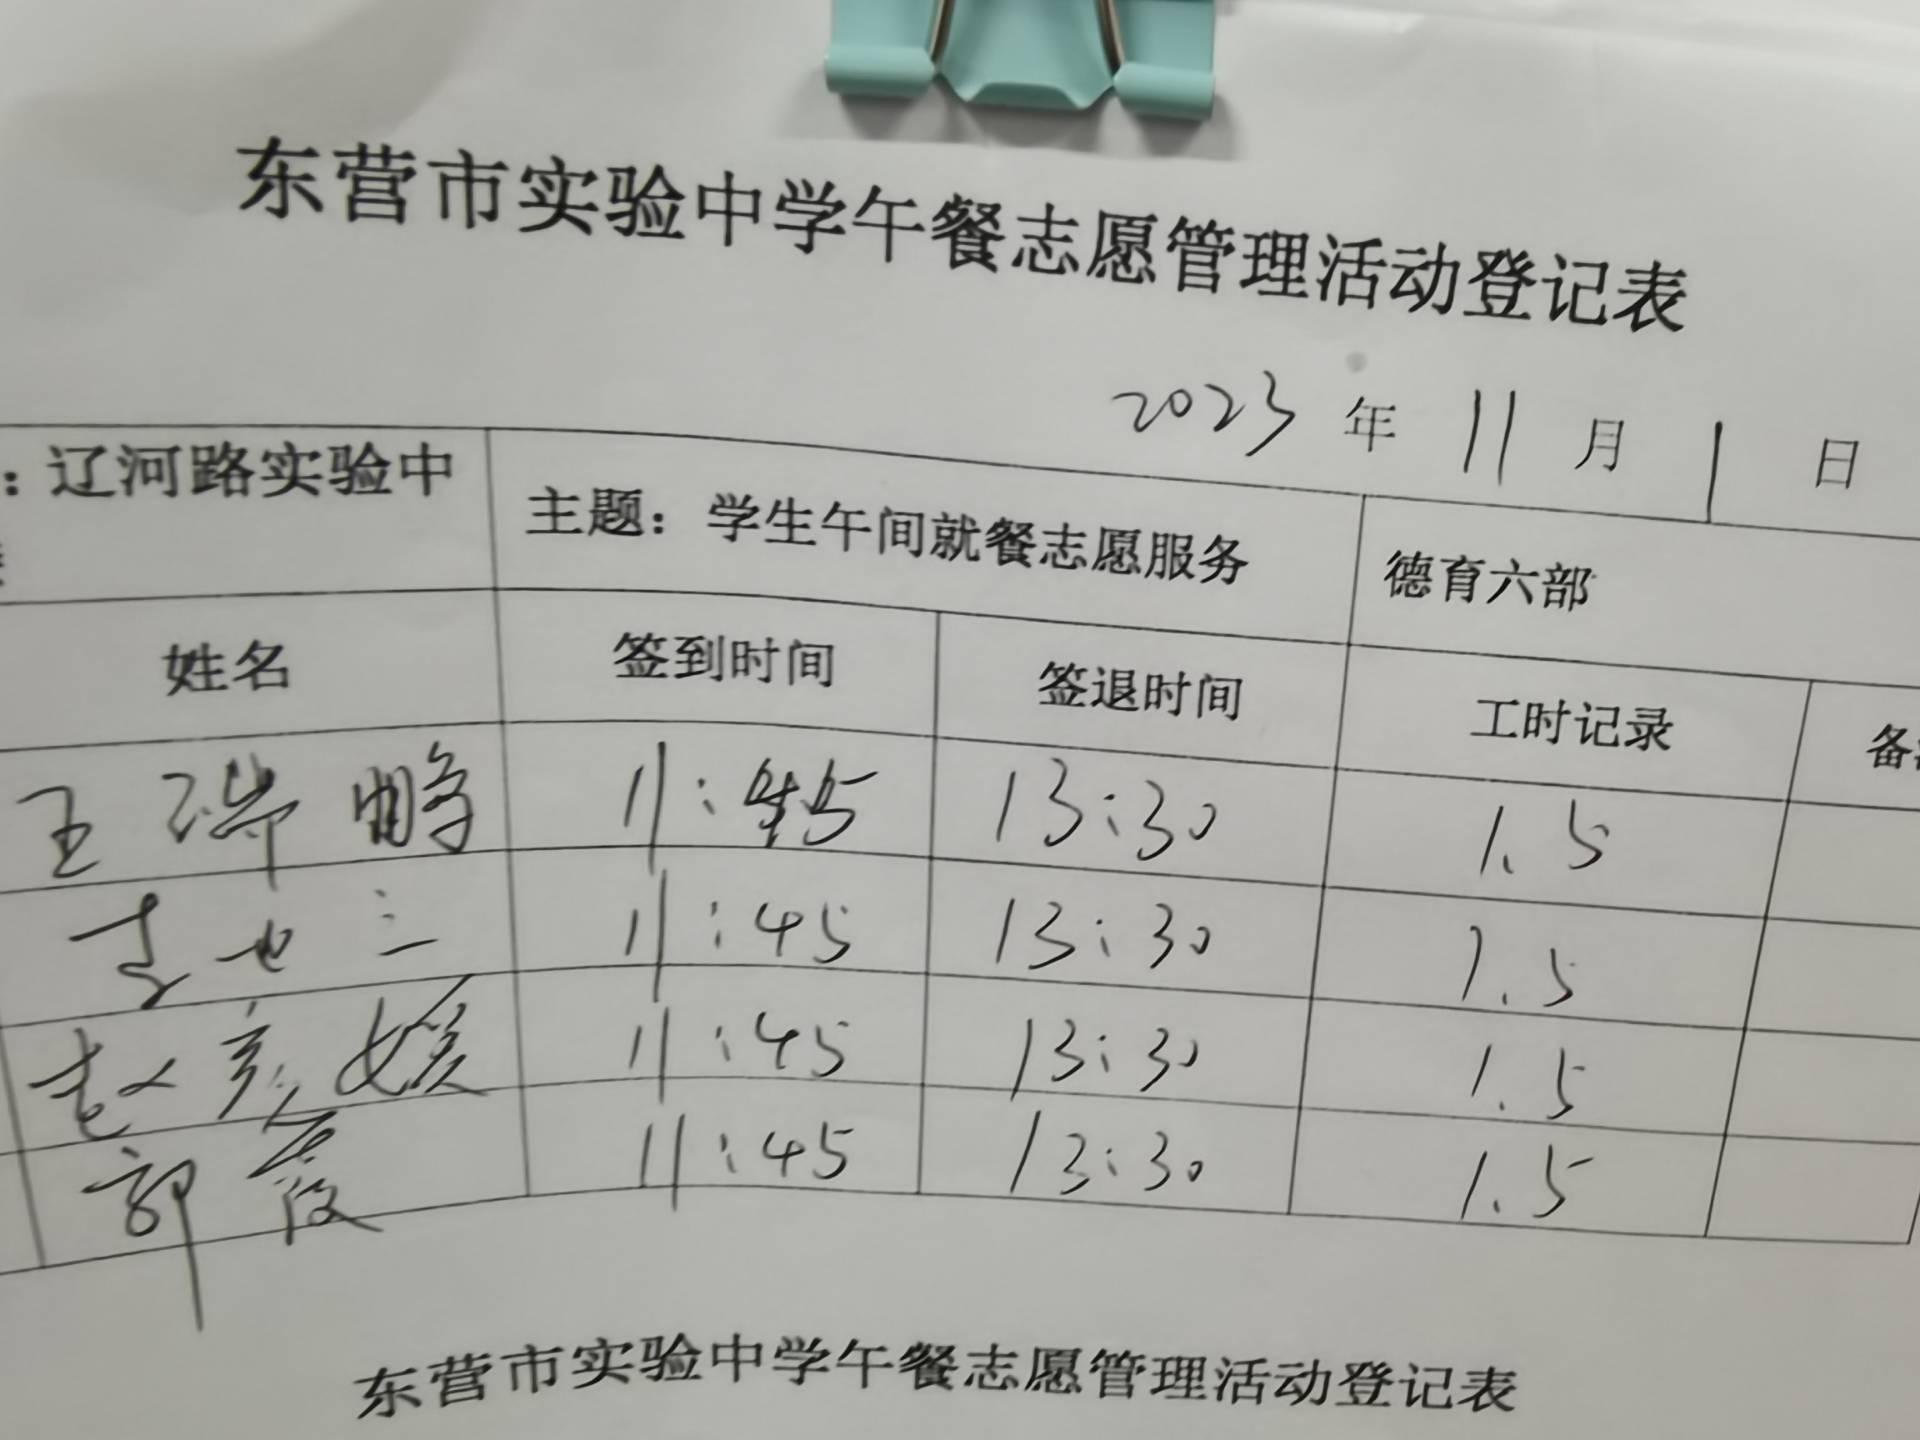 东营市实验中学午餐志愿管理活动登记表
2023 年 11 月 1 日
：辽河路实验中 主题：学生午间就餐志愿服务 德育六部
姓名 签到时间 签退时间 工时记录 备
王瑞鹏 11:45 13:30 1.5
11:45 13:30 1.5
赵 媛 11:45 13:30 1.5
郭霞 11:45 13:30 1.5
东营市实验中学午餐志愿管理活动登记表